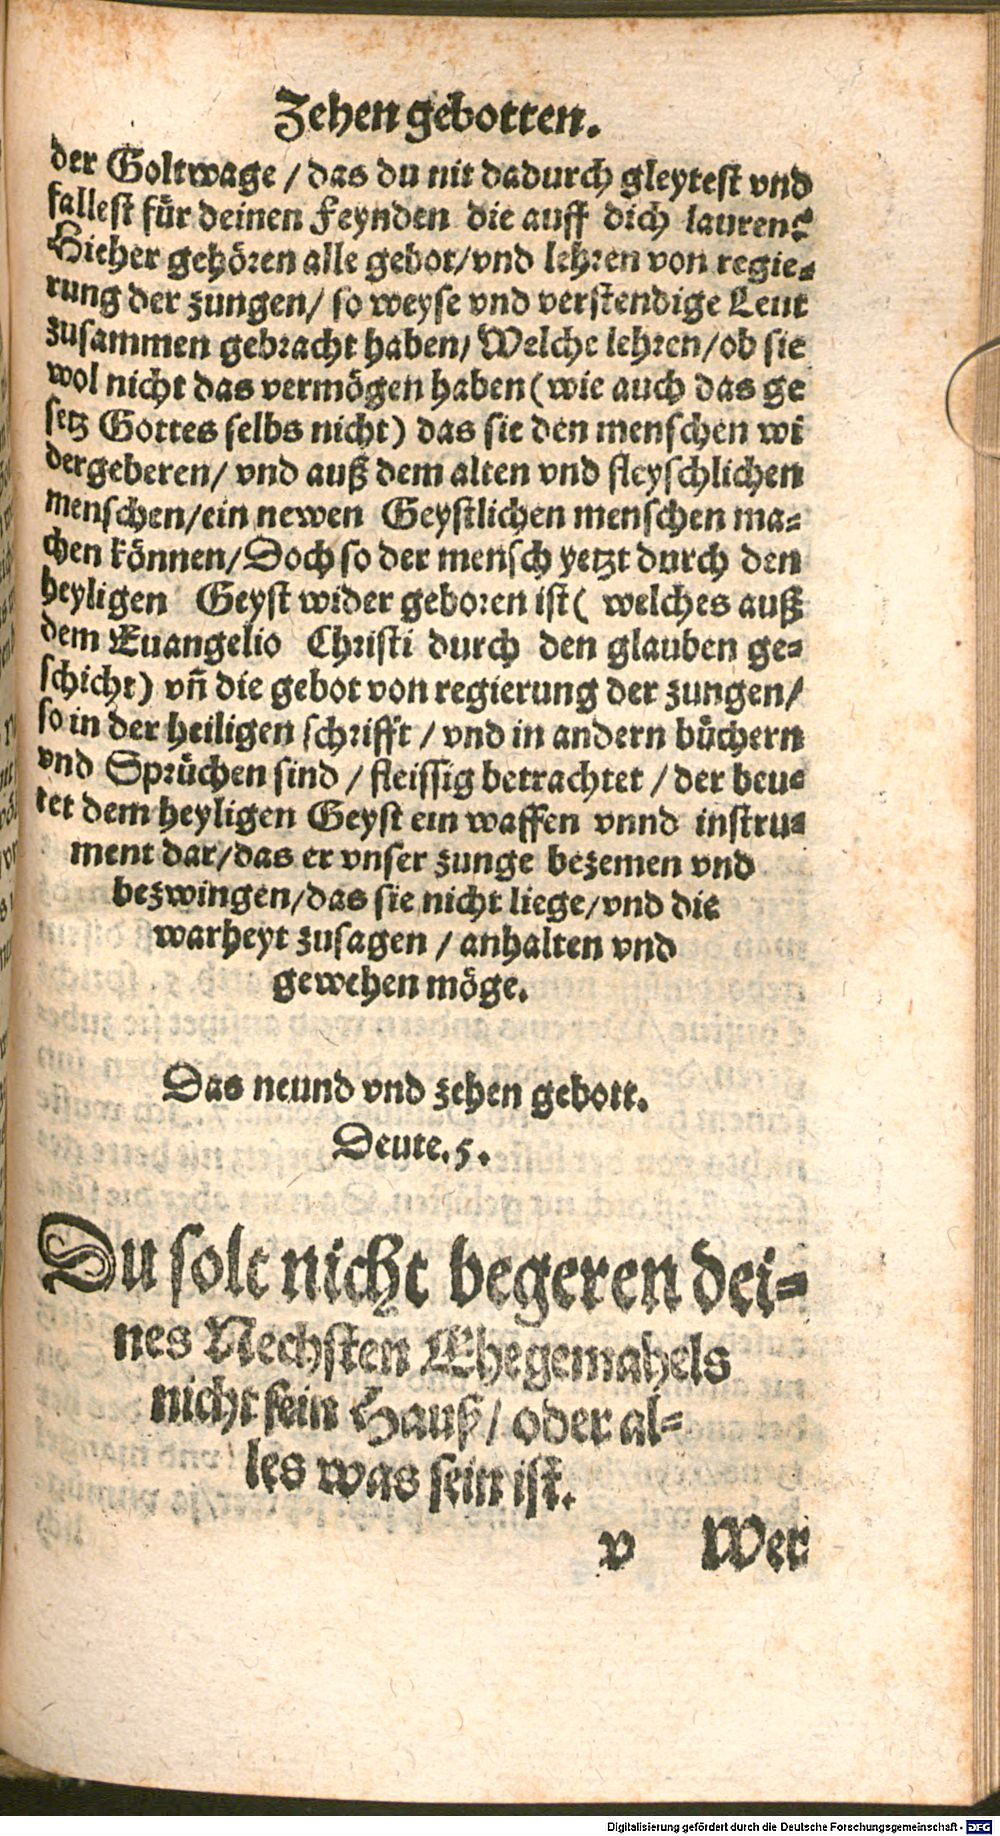 Zehen gebotten.
der Goltwage / das du nit dadurch gleytest vnd
fallest für deinen Feynden die auff dich lauren?
Hieher gehören alle gebot/vnd lehren von regie-
rung der zungen/ so weyse vnd verstendige Leut
zusammen gebracht haben/ Welche lehren/ob sie
wol nicht das vermögen haben (wie auch das ge
setz Gottes selbs nicht) das sie den menschen wi
dergeberen/ vnd auß dem alten vnd fleyschlichen
menschen/ein newen Geystlichen menschen ma-
chen können/Doch so der mensch yetzt durch den
heyligen Geyst wider geboren ist( welches auß
dem Euangelio Christi durch den glauben ge-
schicht) vñ die gebot von regierung der zungen/
so in der heiligen schrifft / vnd in andern büchern
vnd Sprüchen sind / fleissig betrachtet / der beu-
tet dem heyligen Geyst ein waffen vnnd instru-
ment dar/das er vnser zunge bezemen vnd
bezwingen/das sie nicht liege/vnd die
warheyt zusagen / anhalten vnd
gewehen möge.
Das neund vnd zehen gebott.
Deute.5.
DU solt nicht begeren dei-
nes Nechsten Ehegemahels
nicht sein Hauß/ oder al-
les was sein ist.
v Wer
Digitalisierung gefördert durch die Deutsche Forschungsgemeinschaft - DFG